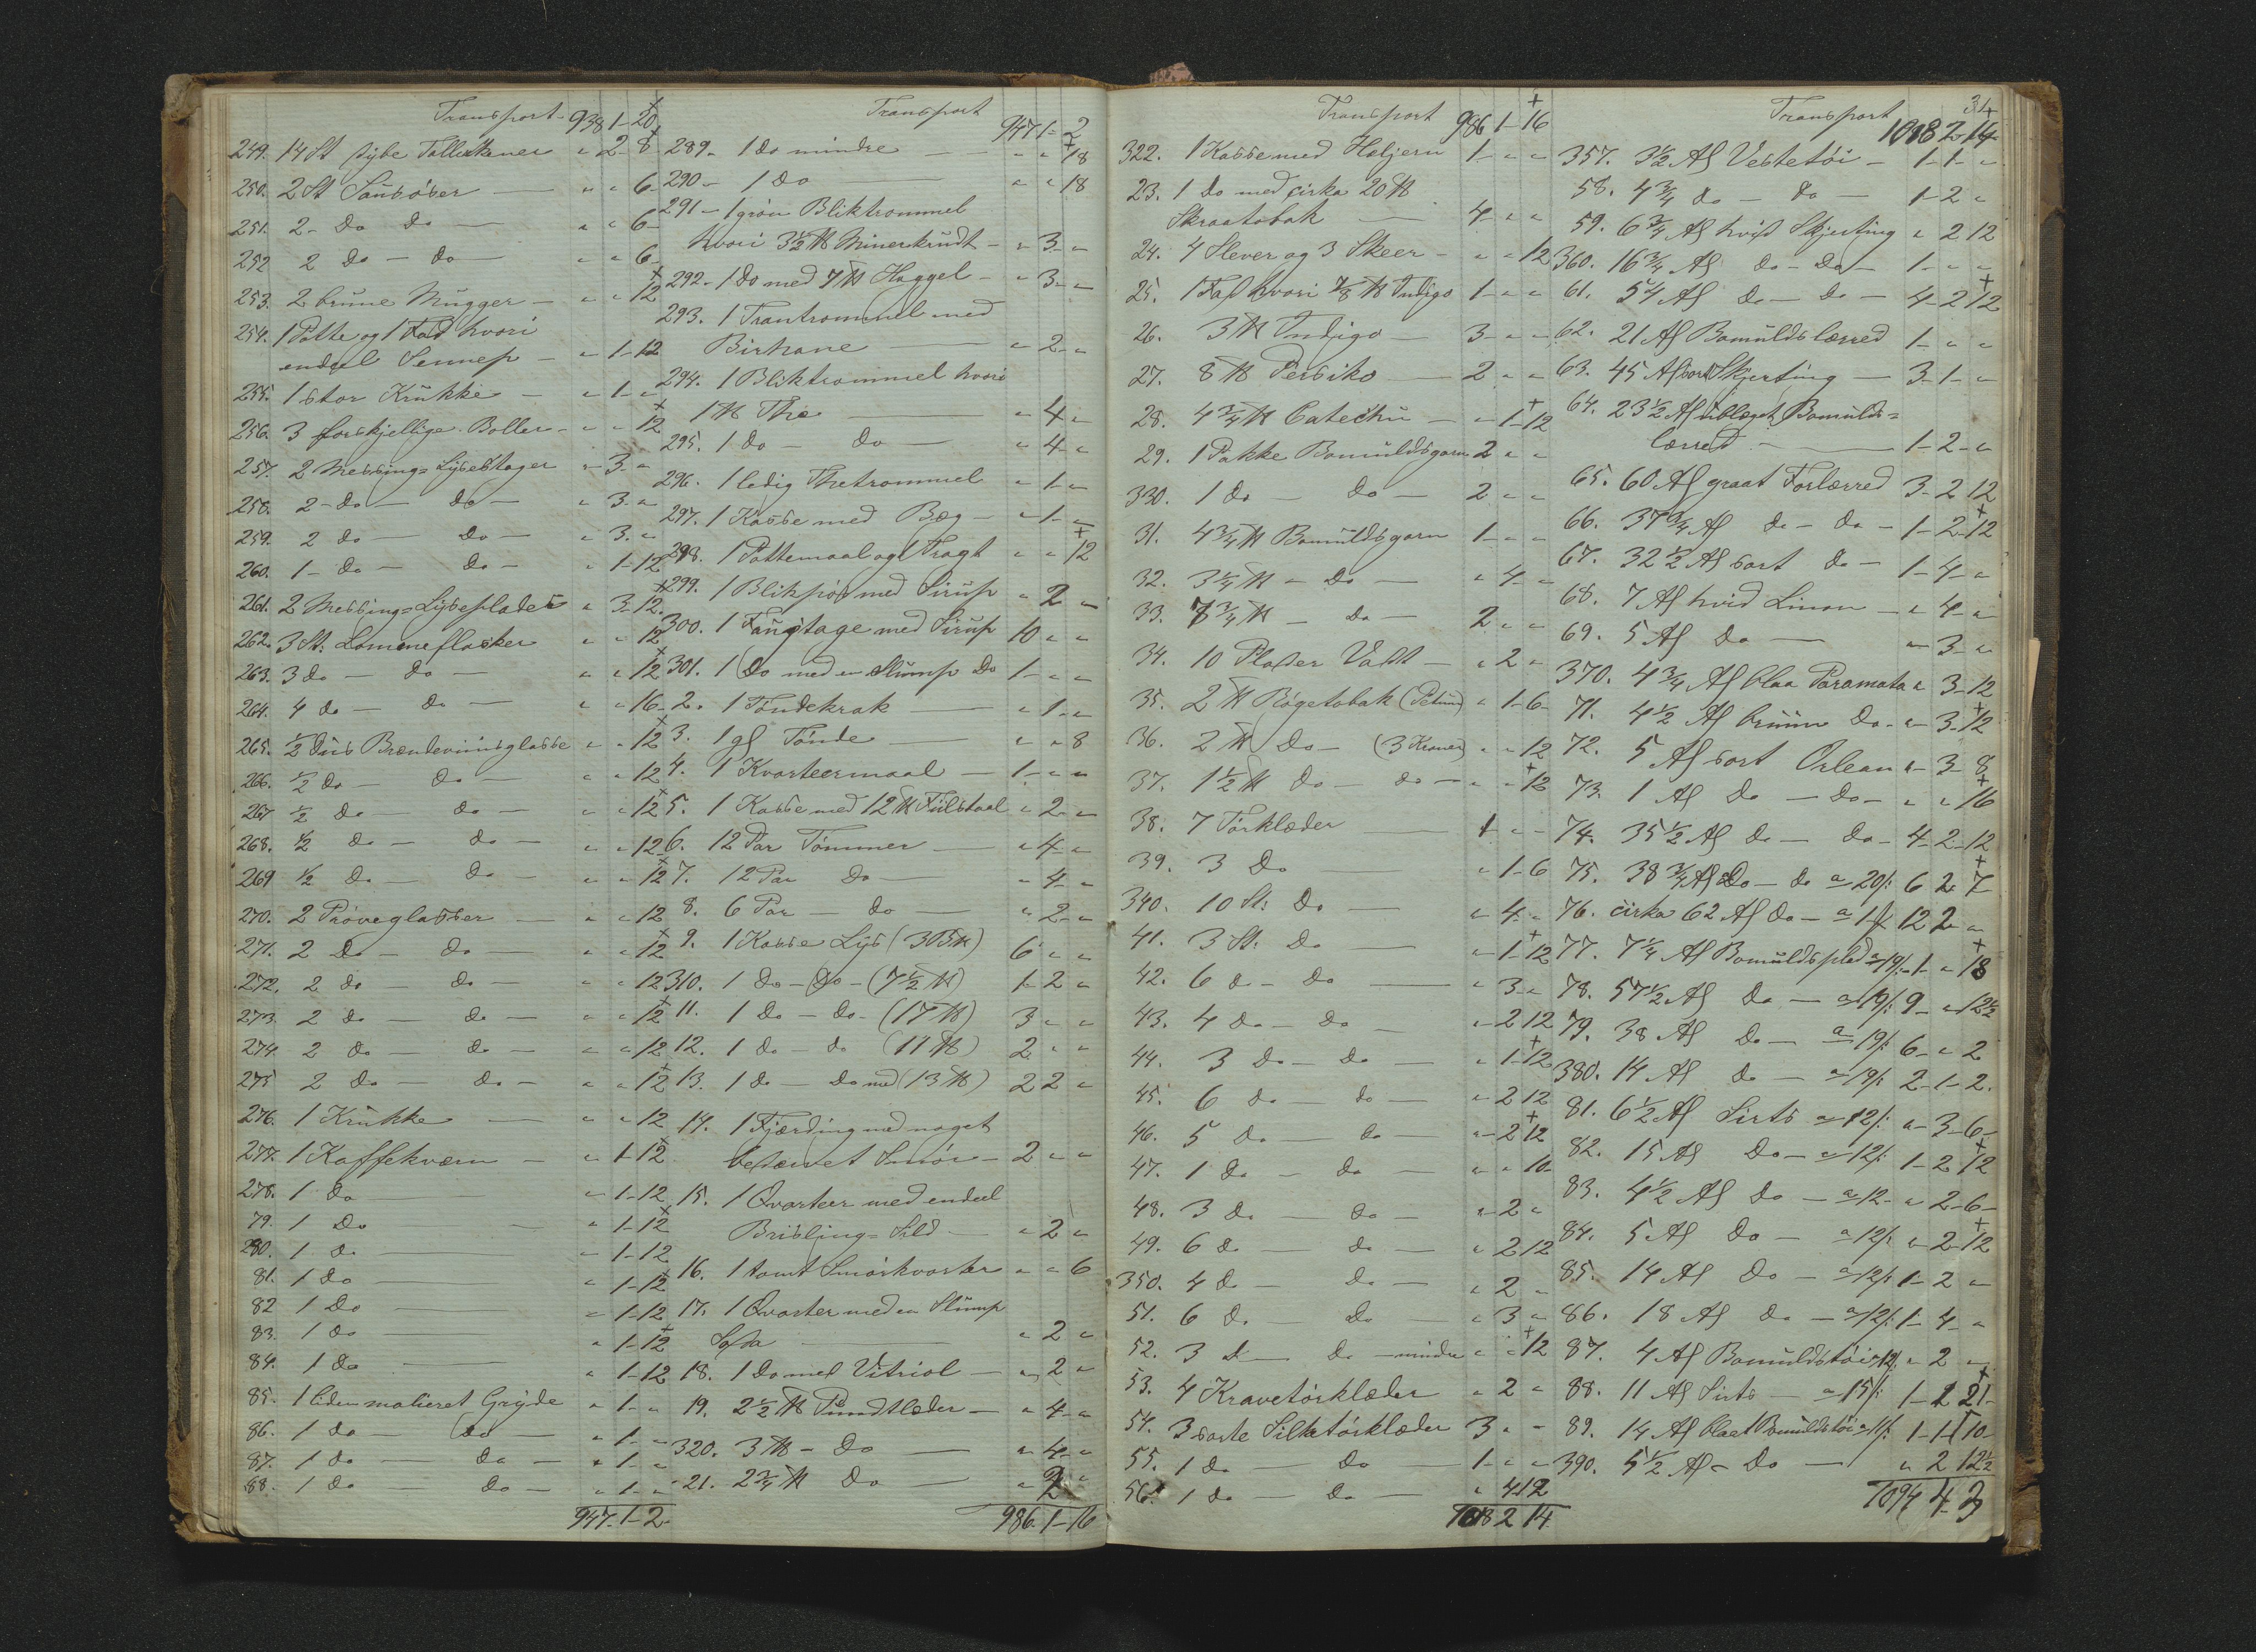 Transport - 938 1-20
249. 14 St dybe Tallerkener " 2-8
250. 2 St Sausöser — " " 6-
251. 2- Do do — " " 6-
252 2 Do - do — " " 6-
253. 2 brune Mugger — " " 12
254. 1 Potte og 1 Fad hvori
endeel Sennep — " 1-12
255. 1 stor Krukke — " 1- "
256. 3 forskjellige Boller - " " 12
257. 2 Messing=Lysestager " 3- "
258. 2 - do — do — " 3- "
259. 2 do — do — " 3- "
260. 1- do — do — " 1-12
261. 2 Messing=Lyseplader " 3-12.
262. 3 St. Lommeflasker " " 12
263. 3 do — do — " " 12
264. 4 do — do — " " 16-
265. ½ Dus Brændeviinsglasse " " 12
266. ½ do — do — " " 12
267 ½ do — do — " " 12
268. ½ do — do — " " 12
269 ½ do — do — " " 12
270. 2 Pröveglasser — " " 12
271. 2 Do — do — " " 12
272. 2 do — do — " " 12
273. 2 do — do — " " 12
274. 2 do — do — " " 12
275 2 do — do — " " 12
276. 1 Krukke — " " 12
277. 1 Kaffekværn — " 1-12
278. 1 do — " 1-12
79. 1 Do — " 1-12
280. 1 do — " 1-12
81. 1 do — " 1-12
82 1 Do — " 1-12
83. 1 do — " 1-12
84. 1 do — " 1-12
85. 1 liden Gryde " 1- "
86. 1 do — do — " 1- "
87. 1 do — do — " 1- "
88. 1 do — do — " 1- "
947-1-2-
Transport 947 1-2
289- 1 do mindre — " " 18
290- 1 do — " " 18
291- 1 grön Bliktrommel
hvori 3½ ℔ Minerkrudt - " 3- "
292- 1 do med 7 ℔ Haggel - " 3- "
293. 1 Trantrommel med
— " 2- "
294. 1 Bliktrommel hvori
1 ℔ The — " 4 "
295. 1 do - do — " 4- "
296. 1 ledig Thetrommel - " 1- "
297. 1 Kasse med Bæg - " 1- "
298. 1 Pottemaal og 1 Tragt " " 12
299. 1 Blikpös med Sirup " 2 "
300. 1 Faustage med Sirup 10 " "
301. 1 Do med en Slump Do 1- " "
2. 1 Töndekrak — " 1- "
3. 1 gl Tönde — " " 8
4. 1 Kvarteermaal — 1- " "
5. 1 Kasse med 12 ℔ " 2- "
6. 12 Par Tömmer — " 4- "
7. 12 Par do — " 4- "
8. 6 Par - do — " 2- "
9. 1 Kasse Lys 6 " "
310. 1 do - do - (7½ ℔) 1-2 "
11. 1 do - do - (17 ℔) 3 " "
12. 1 do - do (11 ℔) 2 " "
13. 1 do - do med (13 ℔) 2 2 "
14. 1 Fjærding med noget
Smör - 2 " "
15. 1 Qvarteer med endeel
Brisling=Sild — " 2 "
16. 1 tomt Smörkvarter " " 6
17. 1 Qvarter med en Slump
— " 2 "
18. 1 do med Vitriol — " 2 "
19. 2½ ℔ Pundtlæder — " 4- "
320. 3 ℔ - do — " 4- "
21. 2¾ ℔ do —
986-1-16
Transport 986 1-16
322. 1 Kasse med Holjern 1- " "
23. 1 do med cirka 20 ℔
Skraatobak — 4- " "
24. 4 Slever og 3 Skeer - " " 12
25. 1 Fad hvori ⅞ ℔ Indigo 1- " "
26. 3 ℔ Indigo — 3- " "
27. 8 ℔ Persiko — 2 " "
28. 4¾ ℔ Catechu — " 1-12
29. 1 Pakke Bomuldsgarn 2 " "
330. 1 do — do — 2 " "
31. 4¾ ℔ Bomuldsgarn 1- " "
32. 3¼ ℔ - do — " 4- "
33. 7¾ ℔ - do — 2 " "
34. 10 Plader Vatt — " 2 "
35. 2 ℔ Rögetobak (Petum) " 1-6-
36. 2 ℔ do - (3 Kroner) " " 12
37. 1½ ℔ do — do — " " 12
38. 7 Törklæder — 1 " "
39. 3 do — " 1-6
340. 10 St. do — " 4- "
41. 3 St. do — " 1-12
42. 6 do - do — " 3- "
43. 4 do - do — " 2 12
44. 3 do - do — " 1-12
45. 6 do - do — " 2 12
46. 5 do - do — " 2 12
47. 1 do - do — " " 10-
48. 3 do — do — " 2 "
49. 6 do — do — " 2 12
350. 4 do — do — " 2 "
51. 6 do — do — " 3 "
52. 3 do — do - mindre " " 12
53. 4 Kravetörklæder " 2 "
54. 3 sorte Silketörklæder 3 " "
55. 1 do — do — 1- " "
56. 1 do — do — " 4 12
1018 2 14
31
Transport 1018 2-14
357. 3½ Al Vestetöi — 1-1- "
58. 4¾ do — do — 1-2 "
59. 6¾ Al hvidt Skjerting " 2 12
360. 16¾ Al do - do - 1- " "
61. 54 Al do - do — 4-2 12
62. 21 Al Bomuldslærred 1- " "
63. 45 Al sort Skjerting — 3-1- "
64. 23½ Al ubleget Bomulds=
lærred — 1-2- "
65. 60 Al graat Forlærred 3-2 12
66. 37¾ Al do - do - 1-2-12
67. 32½ Al sort do - 1-4- "
68. 7 Al hvid Linon — " 4- "
69. 5 Al do — " 3- "
370. 4¾ Al blaa Paramata " 3-12
71. 4½ Al bruun do - " 3-12
72. 5 Al sort Orlean " 3-8
73. 1 Al do — do - " " 16
74. 35½ Al do — do - 4-2-12
75. 38¾ Al do - do a 20/: 6 2 7
76. cirka 62 Al do - a 1/ 12 2 "
77. 7¼ Al Bomuldsplad a 19/: 1- " 18
78. 57½ Al do — a 19/: 9- " 12½
79. 38 Al do — a 19/: 6- " 2
380. 14 Al do — a 19/: 2-1-2.
81. 6½ Al Sirts a 12/: " 3-6-
82. 15 Al do - a 12/: 1-2 12
83. 4½ Al do - a 12- " 2-6-
84. 5 Al do - a 12/: " 2-12
85. 14 Al do - a 12/: 1-2 "
86. 18 Al do - a 12/: 1-4- "
87. 4 Al Bomuldstöi a 12/: " 2 "
88. 11 Al Sirts — a 15/: 1-2 21-
89. 14 Al blaat Bomuldstöi 1-1-10-
390. 5½ Al - do — " 2 12½
1094 4-3